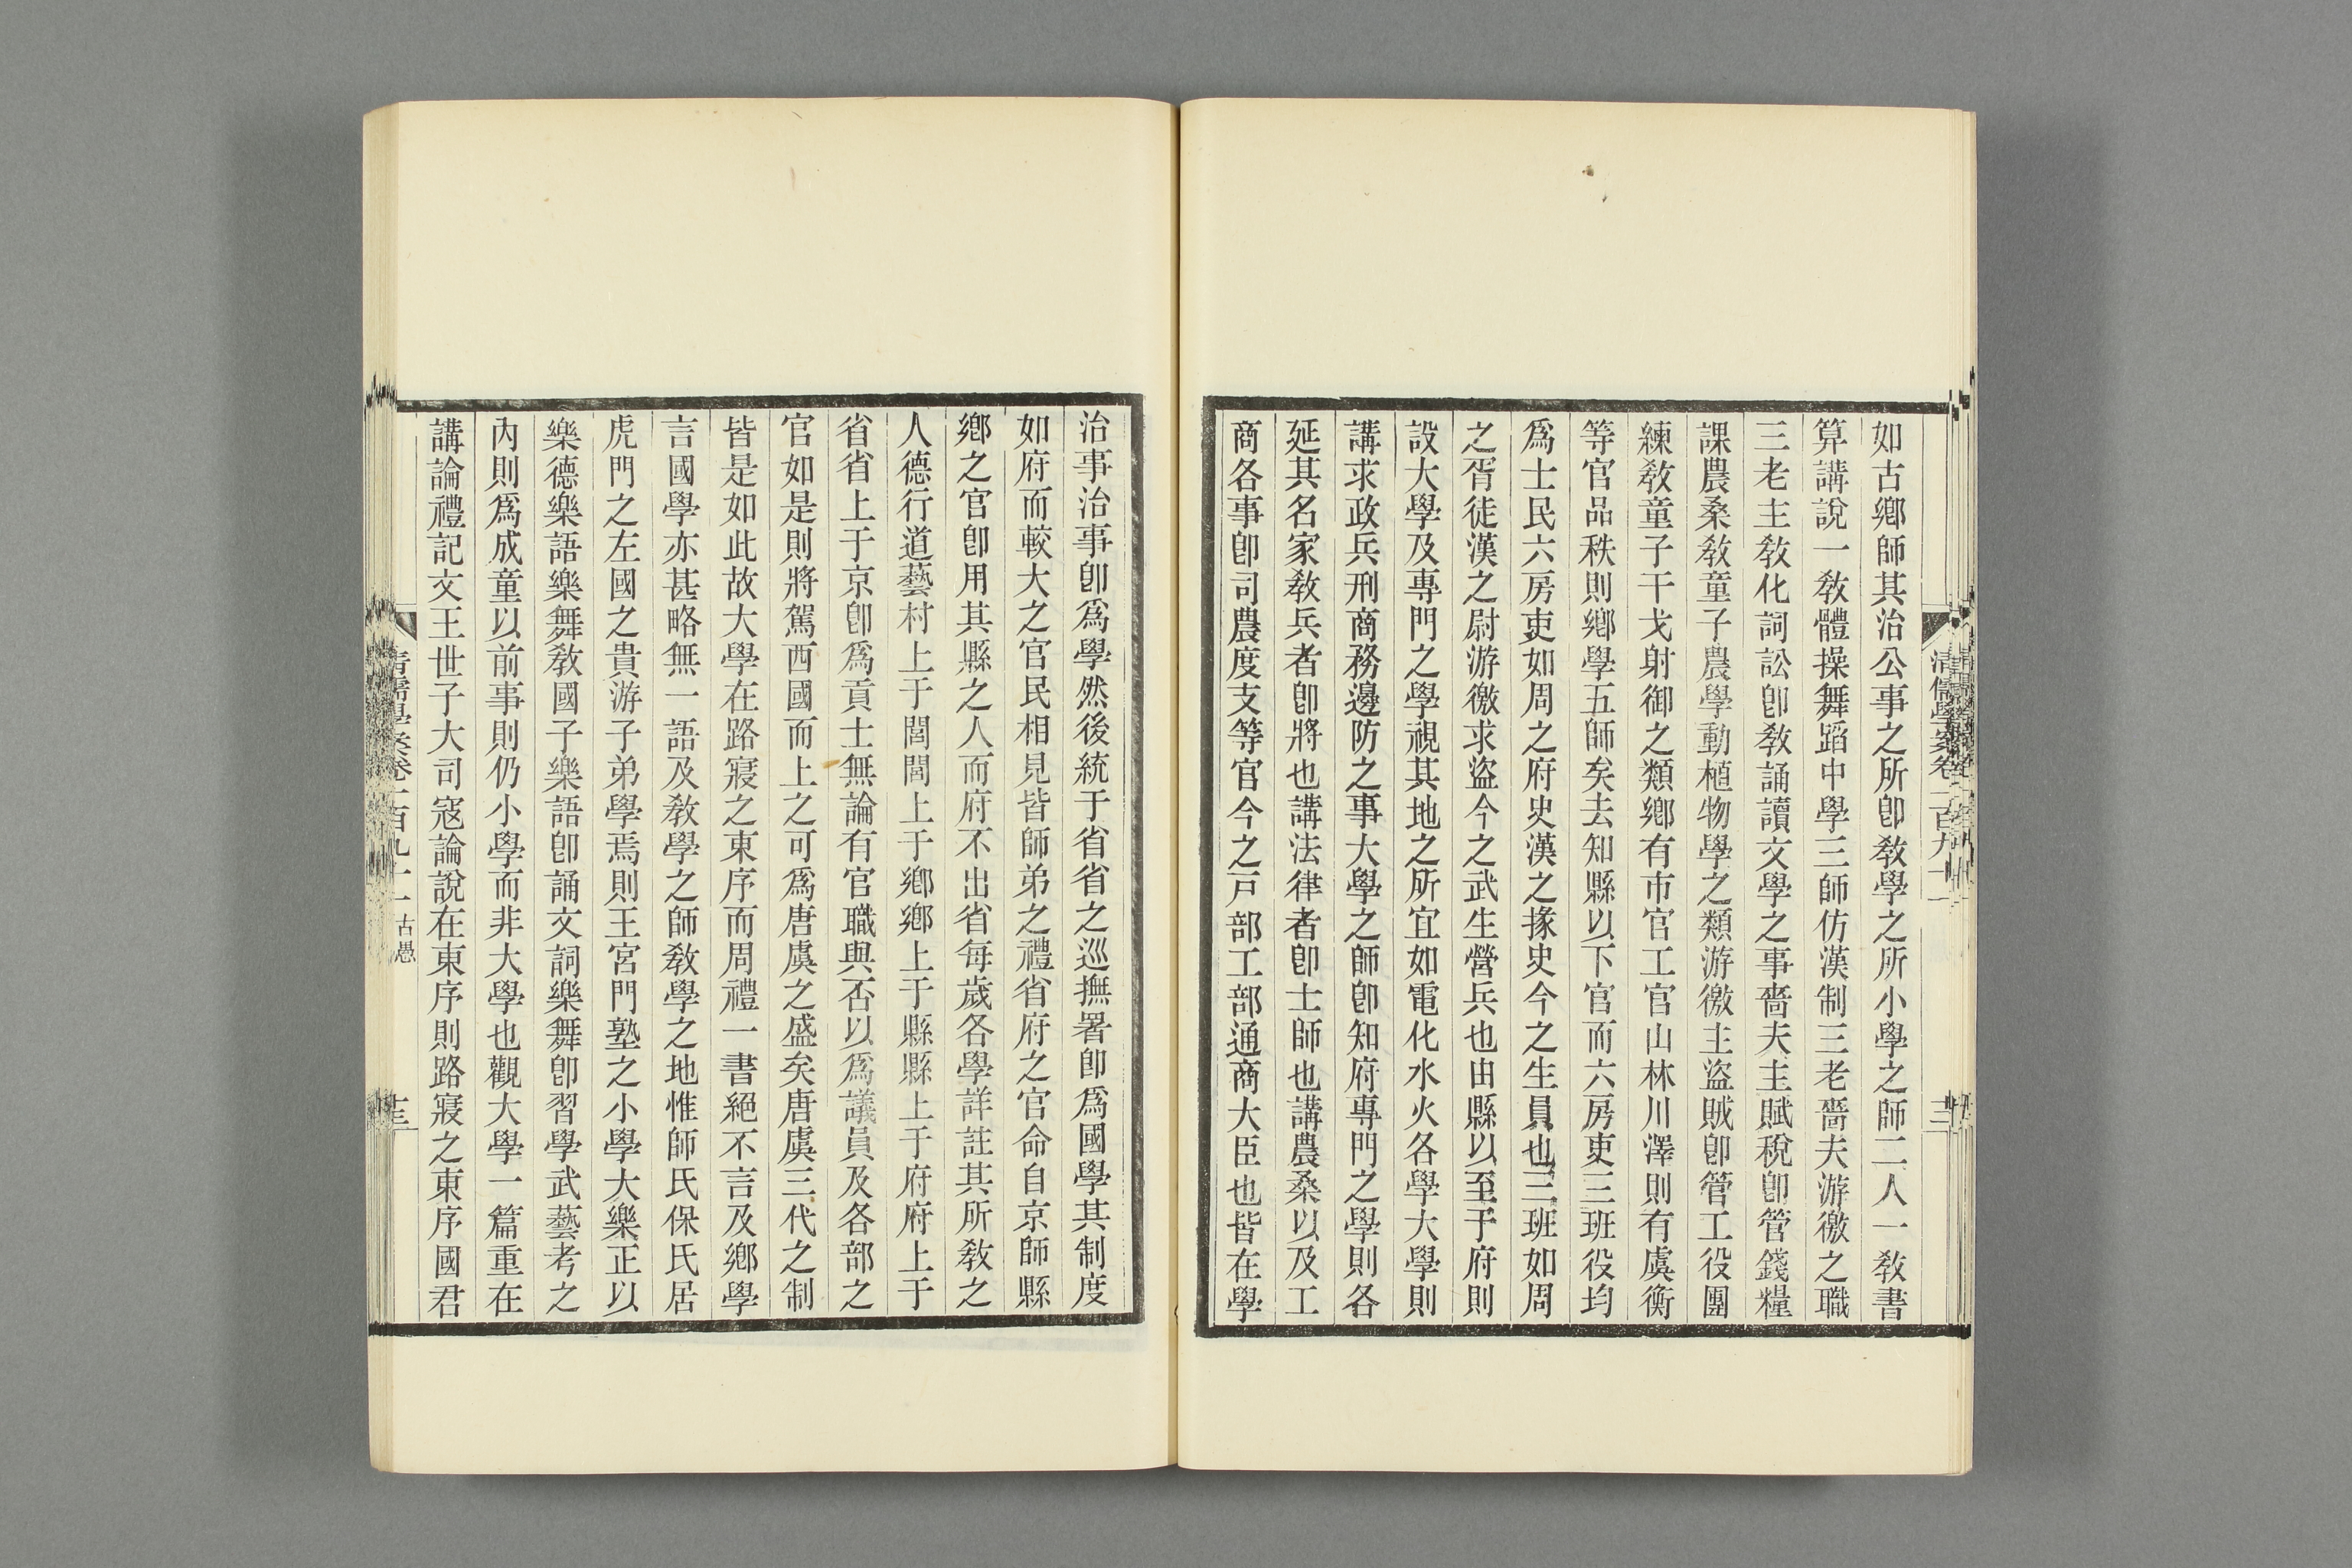 如古鄉師其治公事之所卽敎學之所小學之師二人一敎書
算講說一敎體操舞蹈中學三師仿漢制三老嗇夫游徼之職
三老主敎化詞訟卽敎誦讀文學之事嗇夫主賦稅卽管錢糧
課農桑敎童子農學動植物學之類游徼主盜賊卽管工役團
練敎童子干戈射御之類鄉有市官工官山林川澤則有虞衡
等官品秩則鄉學五師矣去知縣以下官而六房吏三班役均
爲士民六房吏如周之府史漢之掾史今之生員也三班如周
之胥徒漢之尉游徼求盜今之武生營兵也由縣以至于府則
設大學及專門之學視其地之所宜如電化水火各學大學則
講求政兵刑商務邊防之事大學之師卽知府專門之學則各
延其名家敎兵者卽將也講法律者卽士師也講農桑以及工
商各事卽司農度支等官今之戸部工部通商大臣也皆在學
治事治事卽爲學然後統于省省之巡撫署卽爲國學其制度
如府而較大之官民相見皆師弟之禮省府之官命自京師縣
鄉之官卽用其縣之人而府不出省每歲各學詳註其所敎之
人德行道藝村上于閭閭上于鄉鄉上于縣縣上于府府上于
省省上于京卽爲貢士無論有官職與否以爲議員及各部之
官如是則將駕西國而上之可爲唐虞之盛矣唐虞三代之制
皆是如此故大學在路寢之東序而周禮一書絕不言及鄉學
言國學亦甚略無一語及敎學之師敎學之地惟師氏保氏居
虎門之左國之貴游子弟學焉則王宮門塾之小學大樂正以
樂德樂語樂舞敎國子樂語卽誦文詞樂舞卽習學武藝考之
內則爲成童以前事則仍小學而非大學也觀大學一篇重在
講論禮記文王世子大司寇論說在東序則路寢之東序國君
古愚